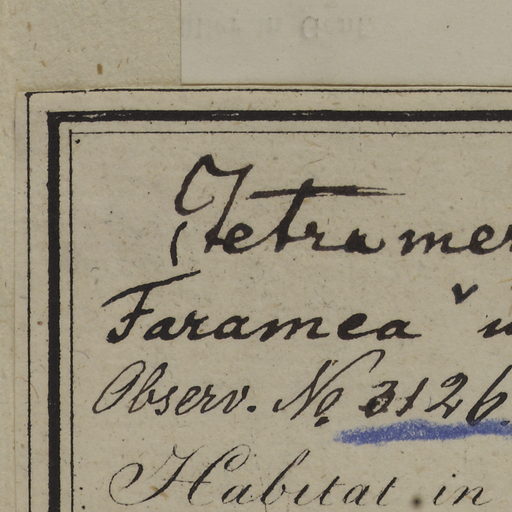 Tetramer
Faramea
Observ. No 3126.
Habitat in